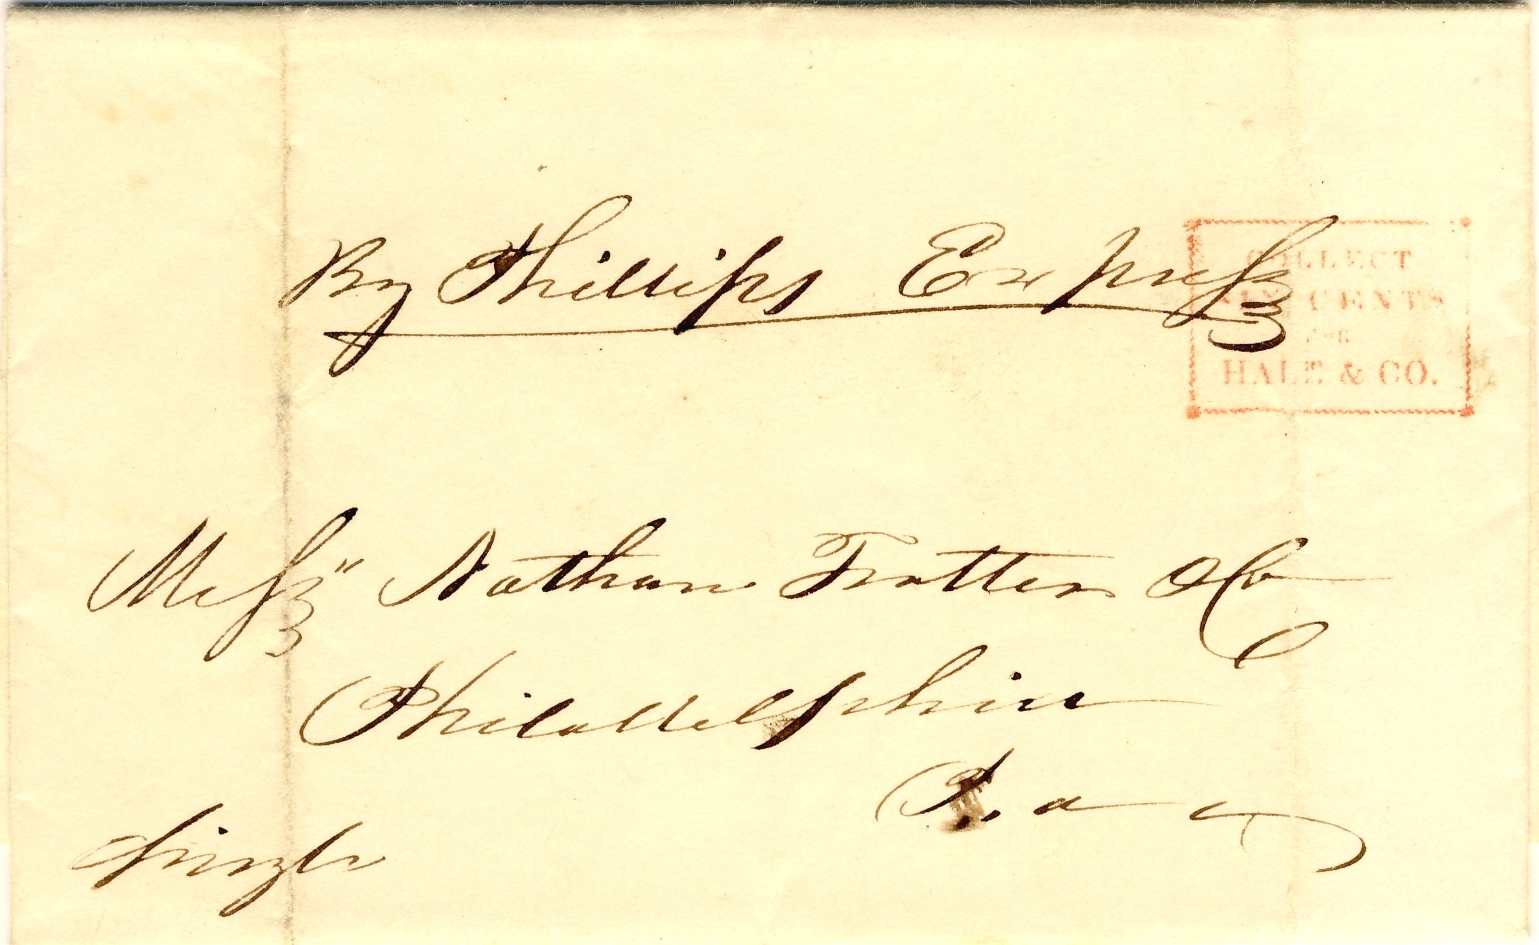 By Phillips Express
COLLECT
SIX CENTS
FOR
HALE & CO.
Messrs Nathan Trotter & Co
Philadelphia
Pa
Single